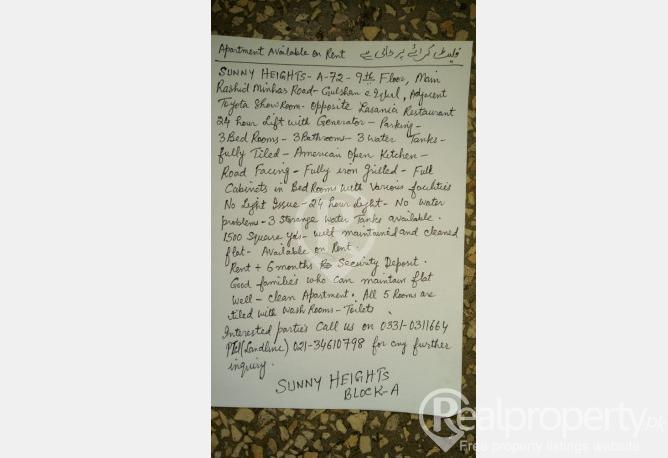 Apartment Available on Rent فلیٹ کرائے پر خالی ہے
SUNNY HEIGHTS - A-72 - 9th Floor, Main
Rashid Minhas Road - Gulshan e Iqbal, Adjacent
Toyota Show Room - Opposite Lasania Restaurant
24 hour Lift with Generator - Parking -
3 Bed Rooms - 3 Bathrooms - 3 water Tanks -
fully Tiled - American Open Kitchen -
Road Facing - Fully iron Grilled - Full
Cabinets in Bed Rooms with Various facilities
No Light Issue - 24 hour Light - No water
problems - 3 Storange water Tanks available.
1500 Square yds - well maintained and cleaned
flat - Available on Rent
Rent + 6 months Security Deposit.
Good families who can maintain flat
well - clean Apartment. All 5 Rooms are
tiled with Wash Rooms - Toilets
Interested parties Call us on 0331-0311664
PTCl (Landline) 021-34610798 for any further
inquiry.
SUNNY HEIGHTS
BLOCK-A
Realproperty.pk
Free property listings website